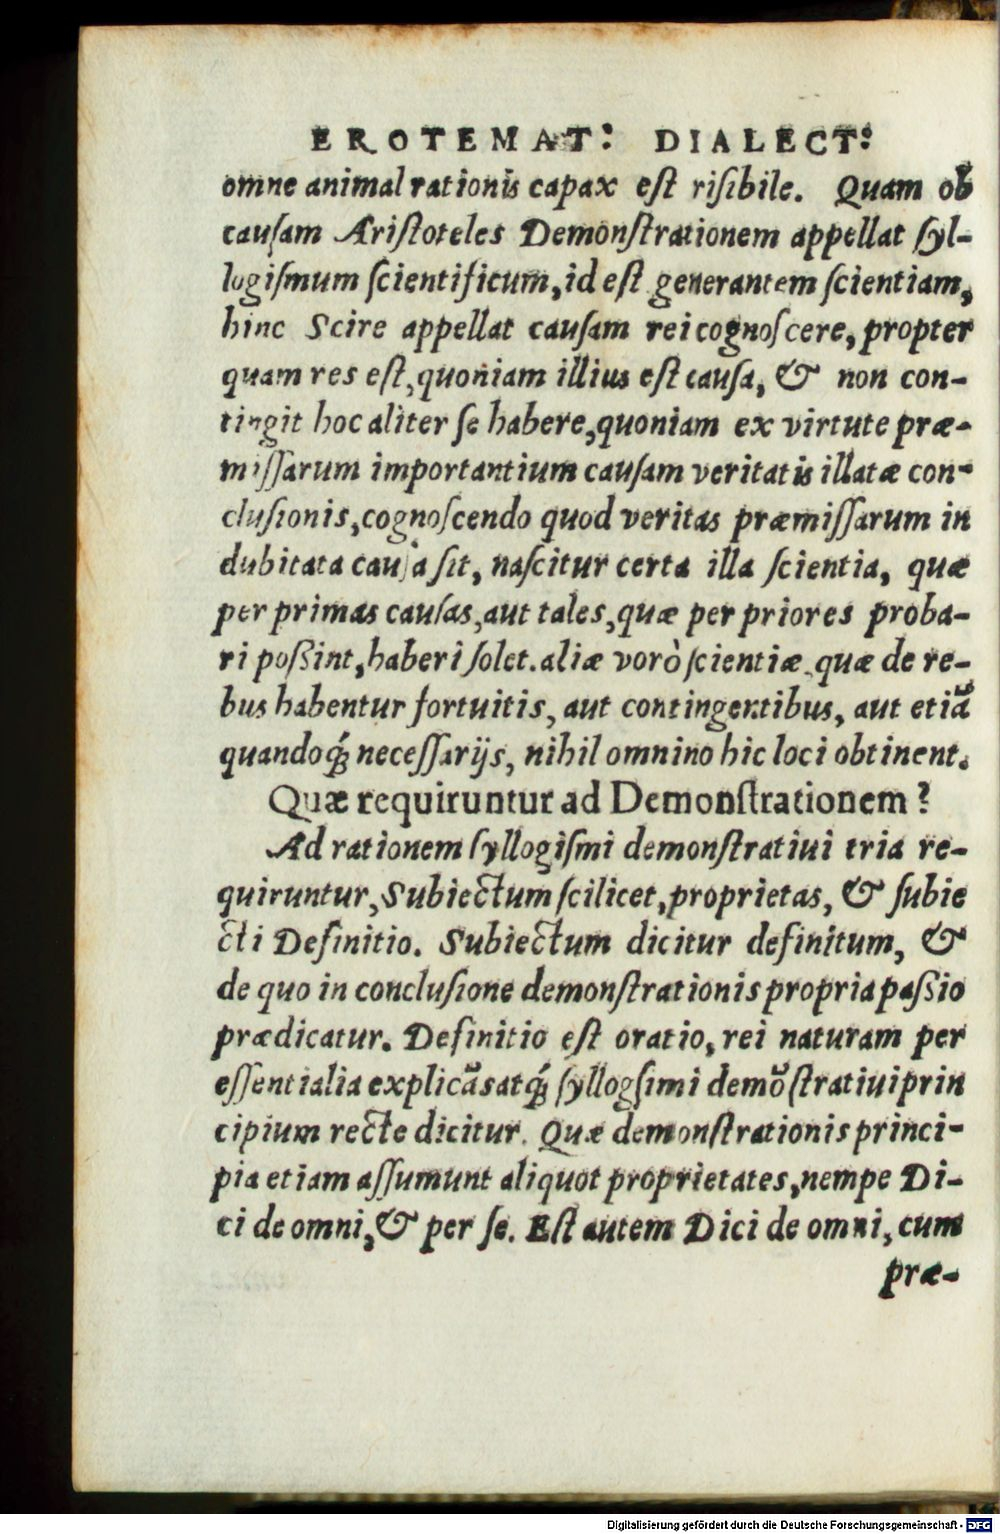 EROTEMAT: DIALECT:
omne animal rationis capax est risibile. Quam ob
causam Aristoteles Demonstrationem appellat syl-
logismum scientificum, id est generantem scientiam,
hinc Scire appellat causam rei cognoscere, propter
quam res est, quoniam illius est causa, & non con-
tingit hoc aliter se habere, quoniam ex virtute præ-
missarum importantium causam veritatis illatæ con-
clusionis, cognoscendo quod veritas præmissarum in
dubitata causa sit, nascitur certa illa scientia, quæ
per primas causas, aut tales, quæ per priores proba-
ri poßint, haberi solet. aliæ vorò scientiæ, quæ de re-
bus habentur fortuitis, aut contingentibus, aut etiã
quandoq́ue necessarijs, nihil omnino hic loci obtinent.
Quæ requiruntur ad Demonstrationem?
Ad rationem syllogismi demonstratiui tria re-
quiruntur, Subiectum scilicet, proprietas, & subie
cti Definitio. Subiectum dicitur definitum, &
de quo in conclusione demonstrationis propria paßio
prædicatur. Definitio est oratio, rei naturam per
essentialia explicãs atq́ue syllogsimi demõstratiui prin
cipium recte dicitur. Quæ demonstrationis princi-
pia etiam assumunt aliquot proprietates, nempe Di-
ci de omni, & per se. Est autem Dici de omni, cum
præ-
Digitalisierung gefördert durch die Deutsche Forschungsgemeinschaft - DFG